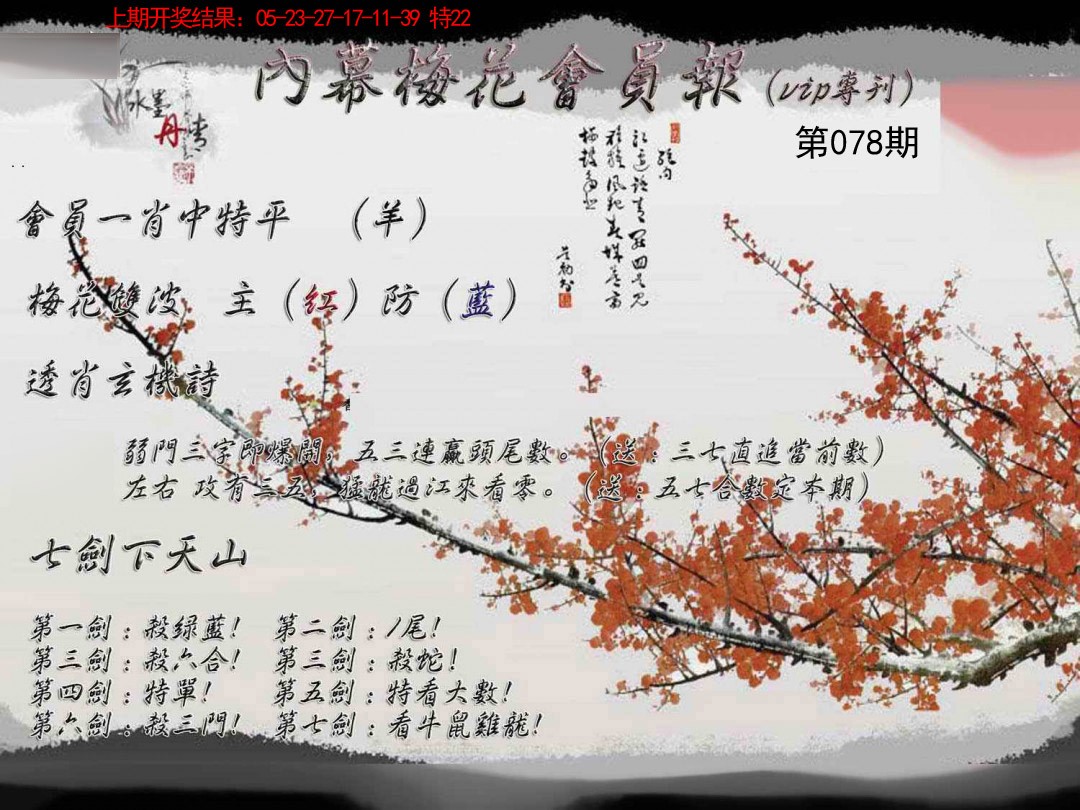 上期开奖结果：05-23-27-17-11-39 特22
內幕梅花會員報（vip專刊）
水墨
丹青
第078期
會員一肖中特平 （羊）
梅花雙波 主（红）防（藍）
透肖玄機詩
弱門三字即爆開，五三連贏頭尾數。（送：三七直追當前數）
左右 攻有三五，猛龍過江來看零。（送：五七合數定本期）
七劍下天山
第一劍：殺绿藍！ 第二劍：1尾！
第三劍：殺六合！ 第三劍：殺蛇！
第四劍：特單！ 第五劍：特看大數！
第六劍：殺三門！ 第七劍：看牛鼠雞龍！